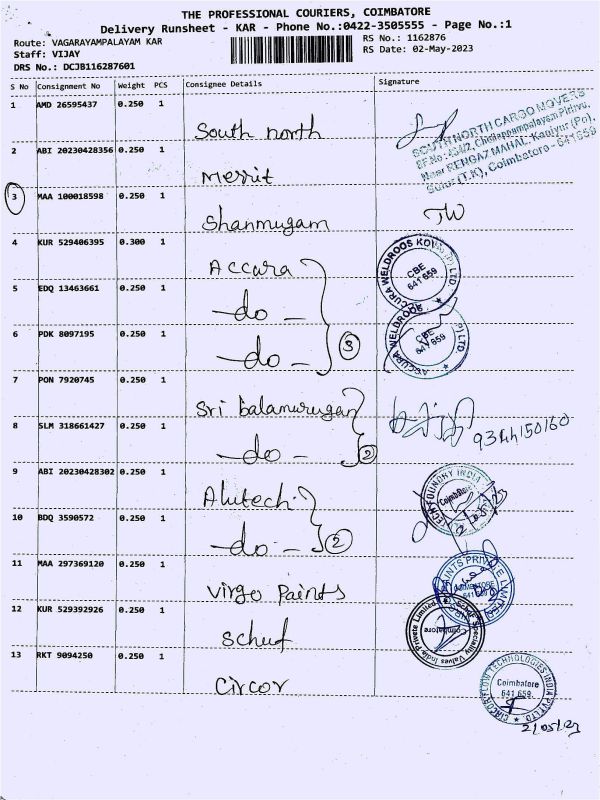 THE PROFESSIONAL COURIERS, COIMBATORE
Delivery Runsheet - KAR - Phone No.:0422-3505555 - Page No.:1
Route: VAGARAYAMPALAYAM KAR
RS No.: 1162876
Staff: VIJAY
RS Date: 02-May-2023
DRS No.: DCJB116287601
S No Consignment No Weight PCS Consignee Details Signature
1 AMD 26595437 0.250 1
South north
SOUTH NORTH CARGO MOVERS
Near RENGAZ MAHAL, Kaniyur (Po),
Sulur (T.K), Coimbatore - 641659
2 ABI 20230428356 0.250 1
Merrit
3 MAA 100018598 0.250 1
Shanmugam
4 KUR 529406395 0.300 1
Accura
CBE
641 659
5 EDQ 13463661 0.250 1
-do-
6 PDK 8097195 0.250 1
-do- 3
CBE
641 659
7 PON 7920745 0.250 1
Sri balamurugan
8 SLM 318661427 0.250 1
-do- 2
9 ABI 20230428302 0.250 1
Alutech
TECH FOUNDRY INDIA
Coimbatore
10 BDQ 3590572 0.250 1
-do- 2
11 MAA 297369120 0.250 1
Virgo Paints
12 KUR 529392926 0.250 1
Coimbatore
13 RKT 9094250 0.250 1
Circor
CIRCOR FLOW TECHNOLOGIES INDIA PVT LTD
Coimbatore
641 659
2/05/23